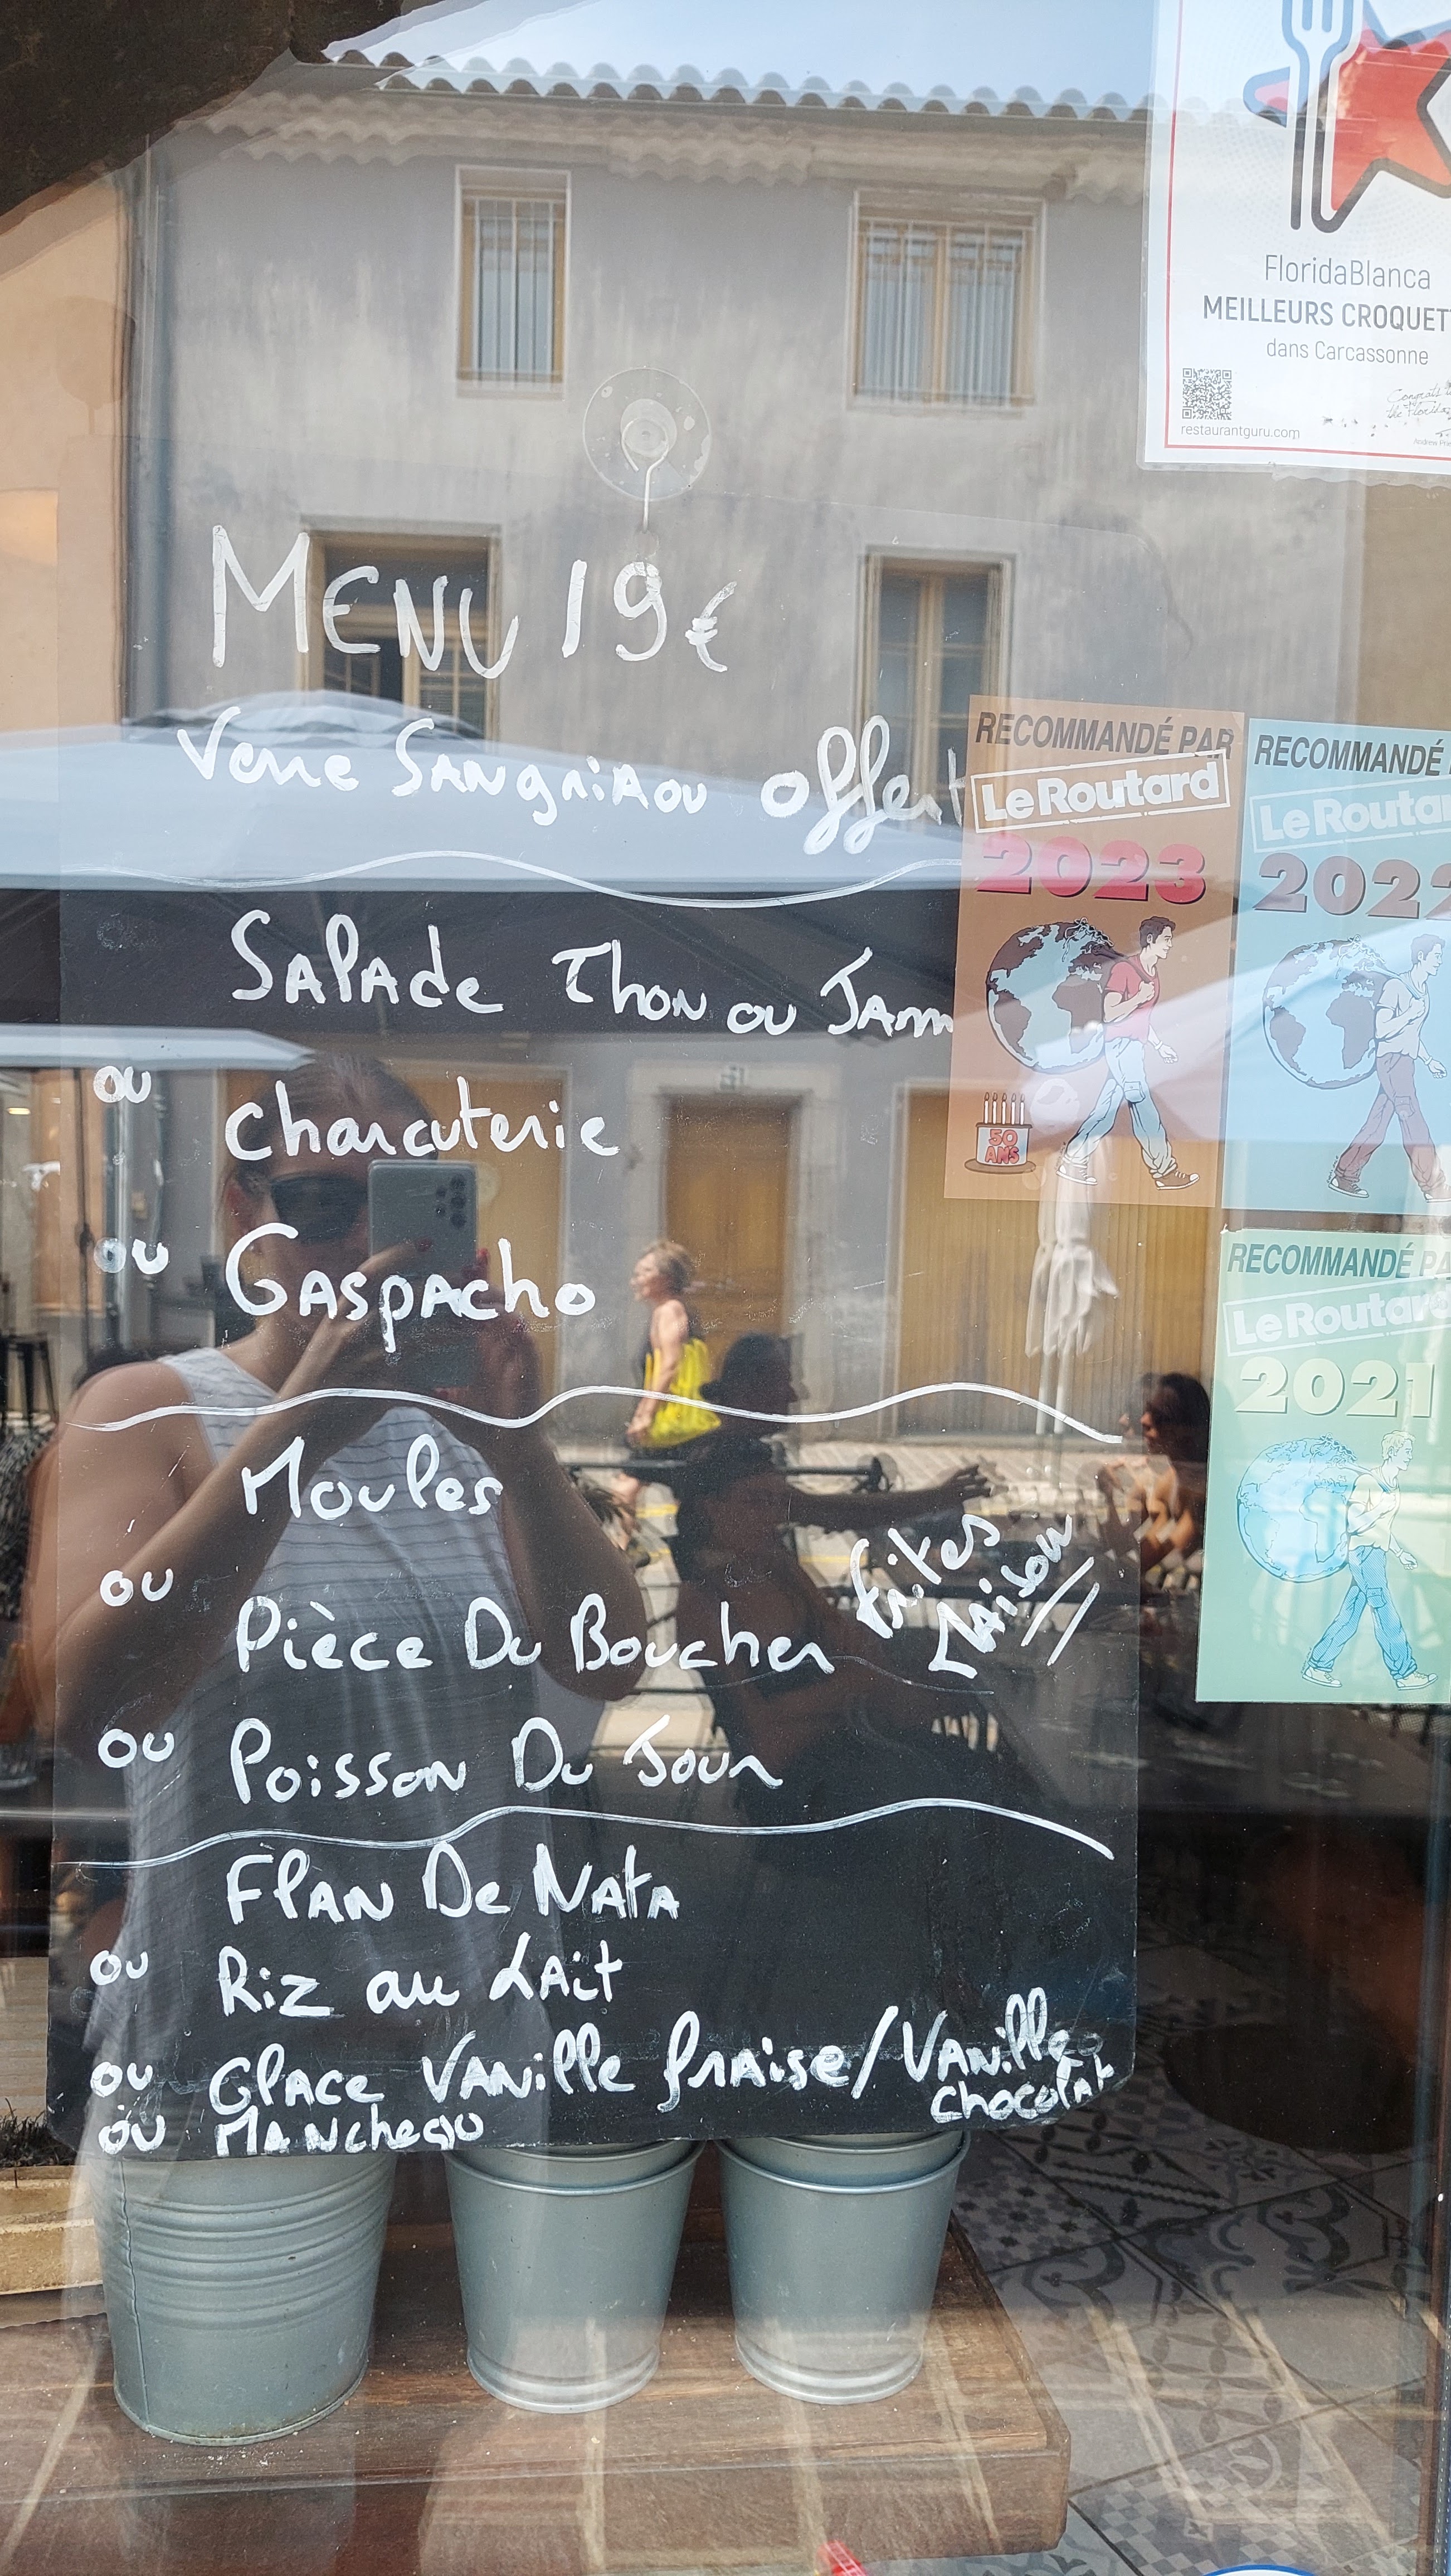 FloridaBlanca
MEILLEURS CROQUET
dans Carcassonne
restaurantguru.com
MENU 19€
Verre SANgriAou offert
SAlAde Thon ou JAm
ou charcuterie
ou GAspAcho
Moules
frites
MAison
ou
Pièce Du Boucher
ou Poisson Du Jour
FlAN De NAtA
ou Riz au LAit
ou GlAce VANille frAise/VANille
chocolat
ou MANchego
RECOMMANDÉ PAR
Le Routard
2023
50
ANS
RECOMMANDÉ
Le Routar
2022
RECOMMANDÉ PA
Le Routard
2021